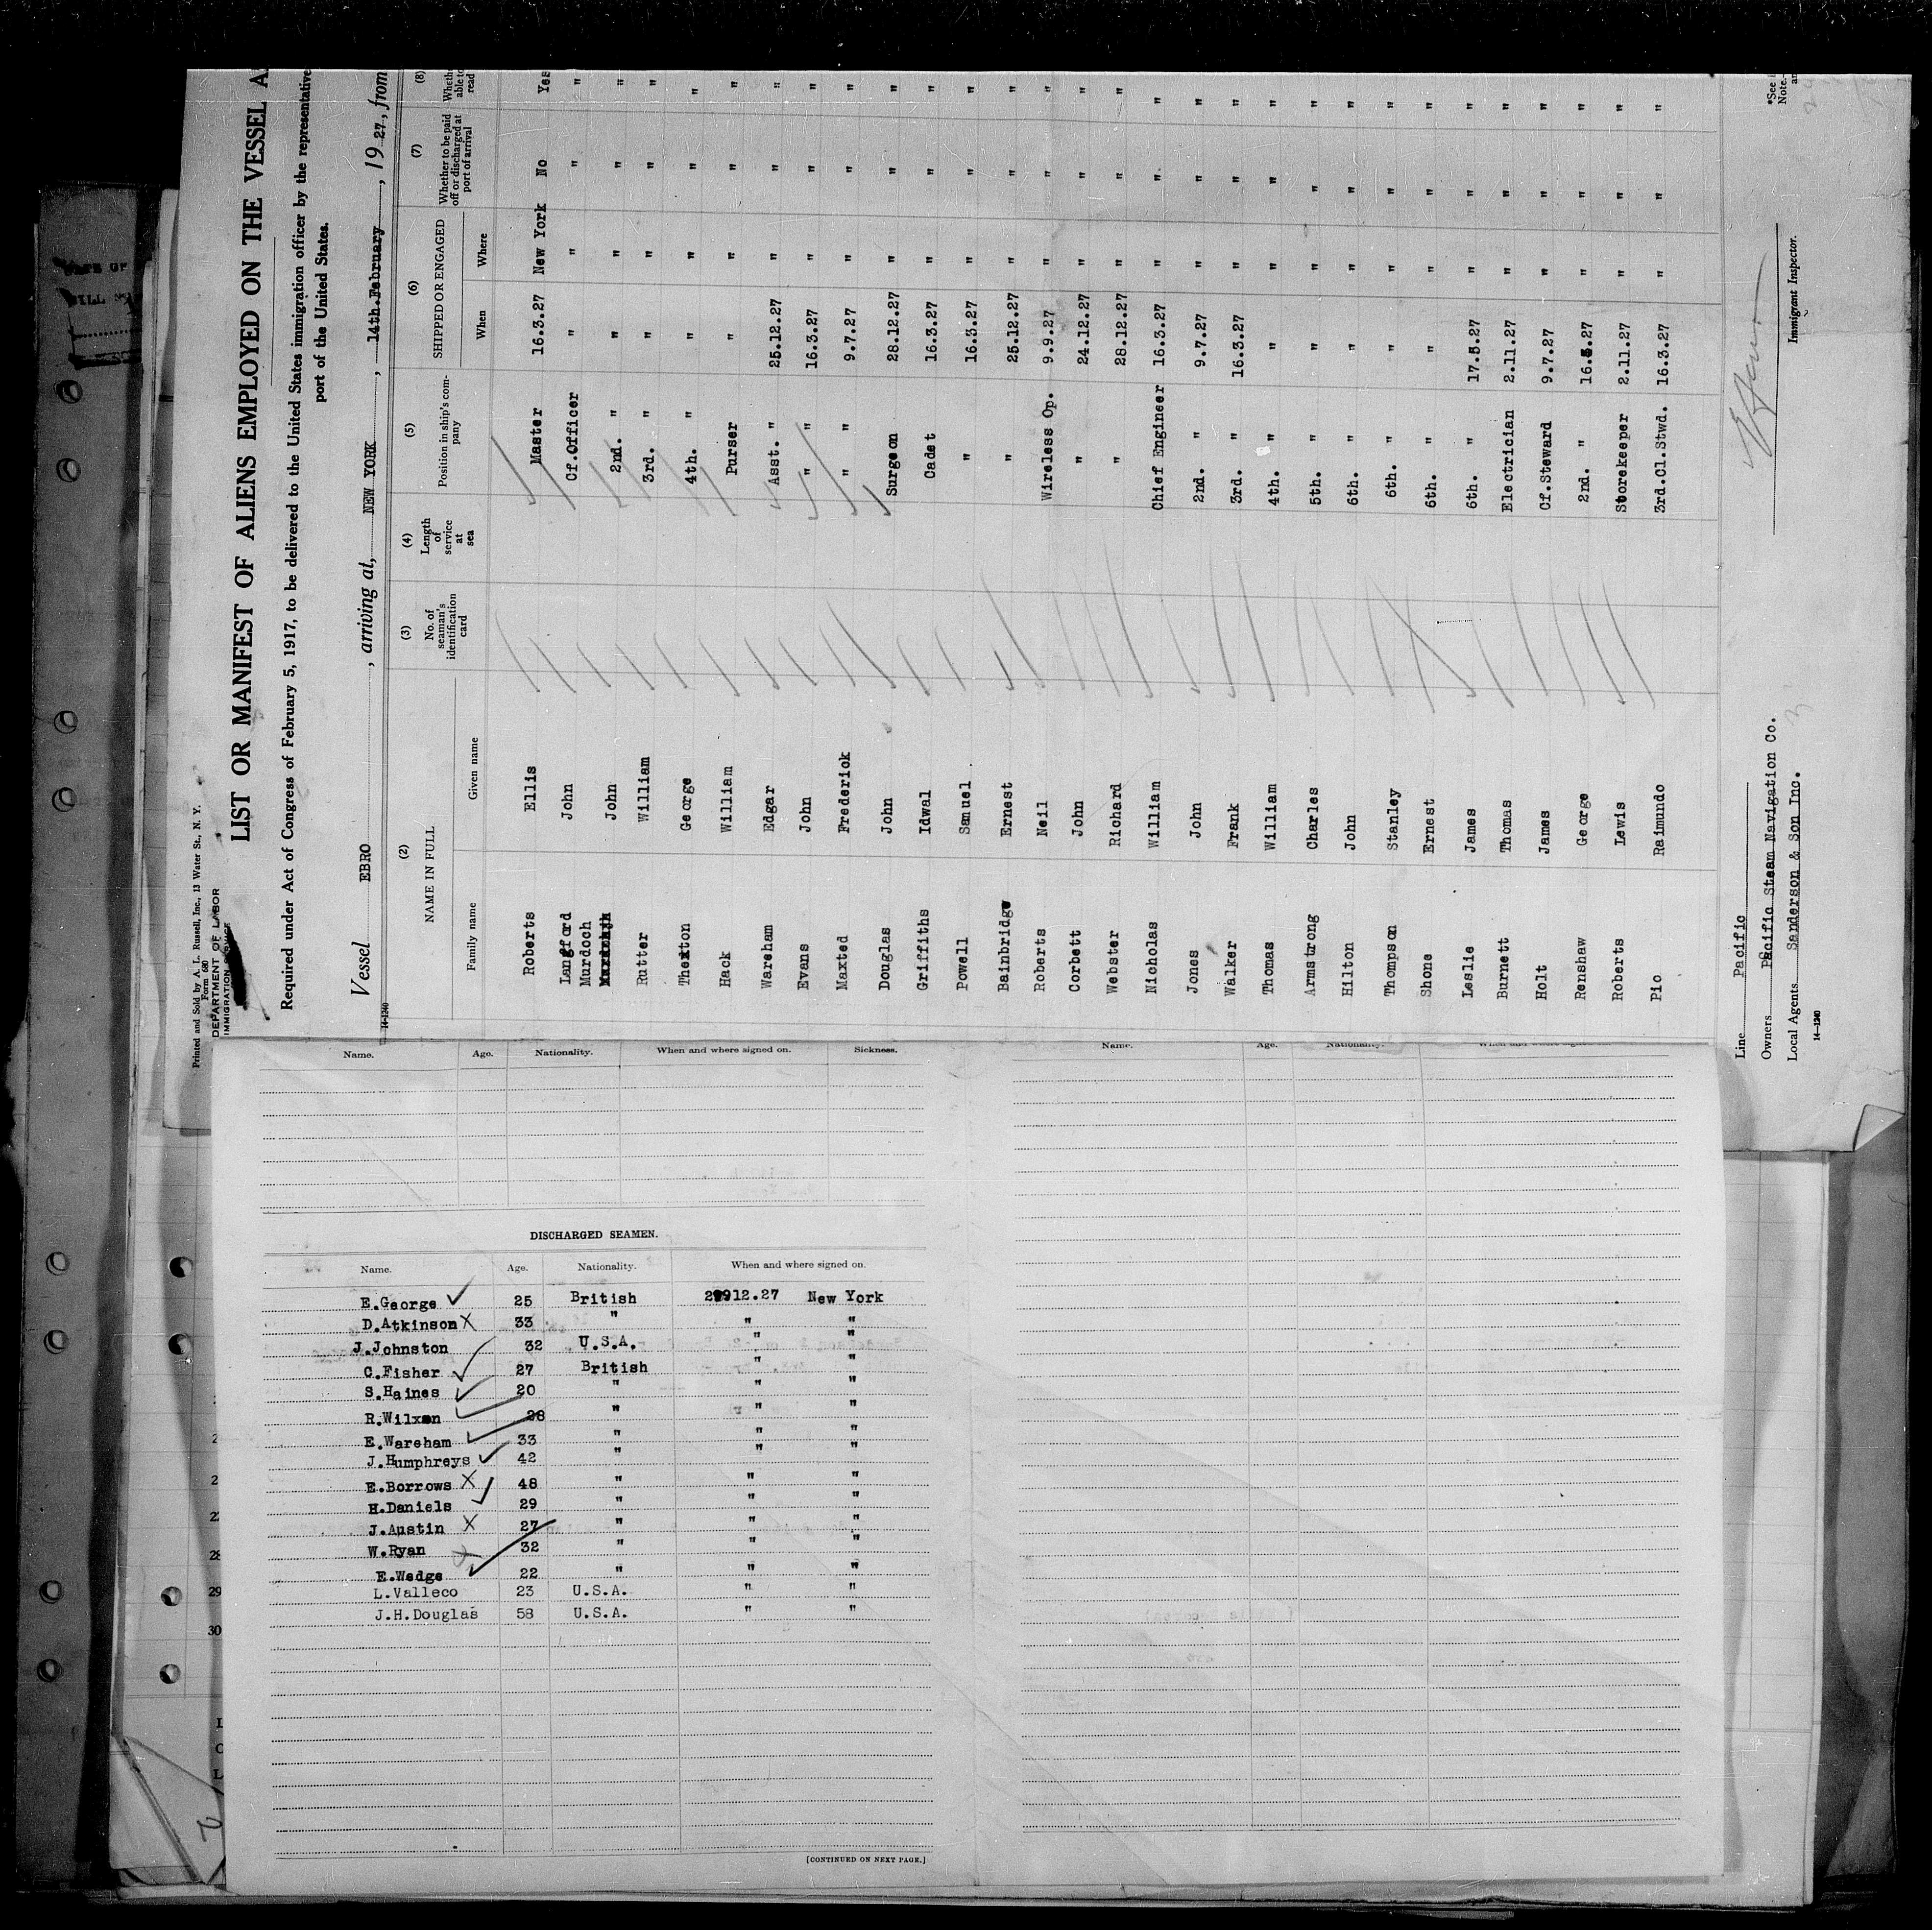 Printed and Sold by A. L. Russell, Inc., 13 Water St., N. Y.
Form 680
DEPARTMENT OF LABOR
IMMIGRATION
LIST OR MANIFEST OF ALIENS EMPLOYED ON THE VESSEL A
Required under Act of Congress of February 5, 1917, to be delivered to the United States immigration officer by the representative
port of the United States.
Vessel EBRO, arriving at, NEW YORK, 14th.February, 1927, from
14-1240
(2) (3) (4) (5) (6) (7) (8)
NAME IN FULL No. of seaman's identification card Length of service at sea Position in ship's company SHIPPED OR ENGAGED Whether to be paid off or discharged at port of arrival Wheth able to read
Family name Given name When Where
Roberts Ellis Master 16.3.27 New York No Yes
Langford John Cf.Officer " " " "
Murdoch John 2nd. " " " " "
Rutter William 3rd. " " " " "
Thexton George 4th. " " " " "
Hack William Purser " " " "
Wareham Edgar Asst. " 25.12.27 " " "
Evans John " " 16.3.27 " " "
Maxted Frederick " " 9.7.27 " " "
Douglas John Surgeon 28.12.27 " " "
Griffiths Idwal Cadet 16.3.27 " " "
Powell Samuel " 16.3.27 " " "
Bainbridge Ernest " 25.12.27 " " "
Roberts Neil Wireless Op. 9.9.27 " " "
Corbett John " 24.12.27 " " "
Webster Richard " 28.12.27 " " "
Nicholas William Chief Engineer 16.3.27 " " "
Jones John 2nd. " 9.7.27 " " "
Walker Frank 3rd. " 16.3.27 " " "
Thomas William 4th. " " " " "
Armstrong Charles 5th. " " " " "
Hilton John 6th. " " " " "
Thompson Stanley 6th. " " " " "
Shone Ernest 6th. " " " " "
Leslie James 6th. " 17.5.27 " " "
Burnett Thomas Electrician 2.11.27 " " "
Holt James Cf.Steward 9.7.27 " " "
Renshaw George 2nd. " 16.3.27 " " "
Roberts Lewis Storekeeper 2.11.27 " " "
Pio Raimundo 3rd.Cl.Stwd. 16.3.27 " " "
Line Pacific
Owners Pacific Steam Navigation Co.
Local Agents Sanderson & Son Inc.
14-1240
Immigrant Inspector.
*See
Note.
Name. Age. Nationality. When and where signed on. Sickness.
Name. Age. Nationality. When and where signed
DISCHARGED SEAMEN.
Name. Age. Nationality. When and where signed on.
E.George 25 British 2912.27 New York
D.Atkinson 33 " " "
J.Johnston 32 U.S.A. " "
C.Fisher 27 British " "
S.Haines 20 " " "
R.Wilxon 28 " " "
E.Wareham 33 " " "
J.Humphreys 42 " " "
E.Borrows 48 " " "
H.Daniels 29 " " "
J.Austin 27 " " "
W.Ryan 32 " " "
E.Wedge 22 " " "
L.Valleco 23 U.S.A. " "
J.H.Douglas 58 U.S.A. " "
28
29
30
[CONTINUED ON NEXT PAGE.]